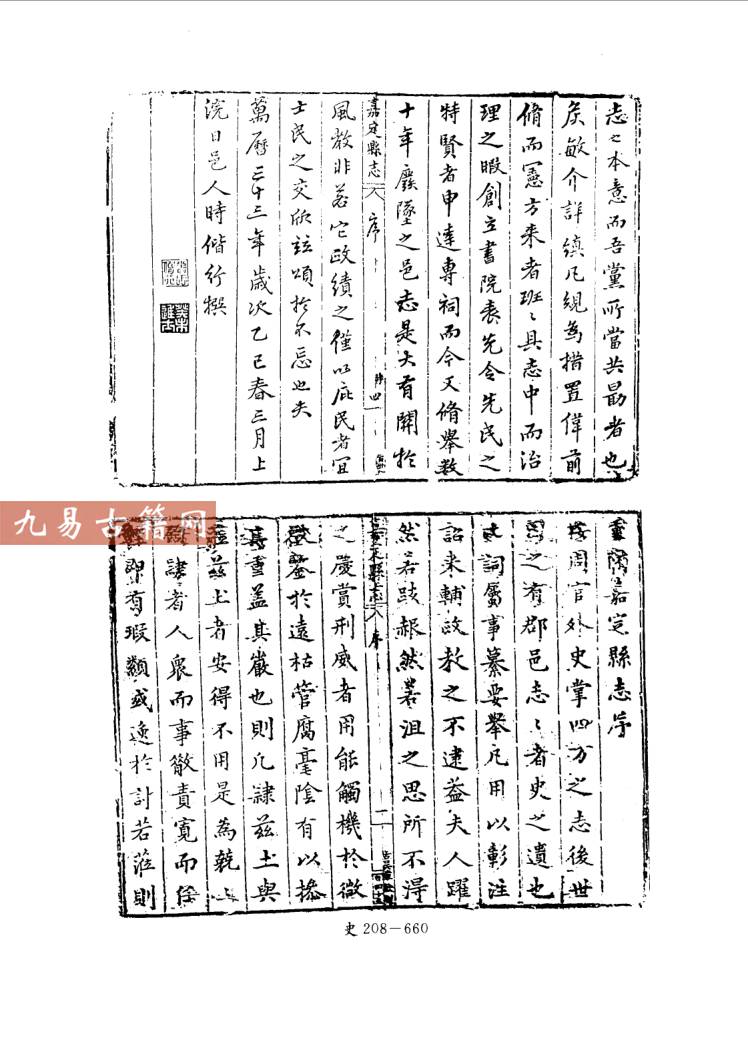 志之本意而吾黨所當共勗者也
侯敏介詳縝凡規為措置偉前
脩而憲方来者班〻具志中而治
理之暇創立書院表先令先民之
特賢者申達專祠而今又脩舉数
十年廢墜之邑志是大有關於
嘉定縣志 序 四
風教非若它政績之僅以庇民者宜
士民之交欣竝頌於不忘也夫
萬曆三十三年歲次乙巳春三月上
浣日邑人時偕行撰
重脩嘉定縣志序
周官外史掌四方之志後世
之有郡邑志〻者史之遺也
詞屬事纂要舉凡用以彰往
詔来輔政教之不逮益夫人躍
然若跂赧然若沮之思所不得
嘉定縣志 序 一
之慶賞刑威者用能觸機於微
於遠枯管腐毫陰有以摻
其重盖其嚴也則凡隸兹土與
兹土者安得不用是為兢〻
隸者人衆而事散責寬而
有瑕纇或逸於討若蒞則
史 208－660
九易古籍网